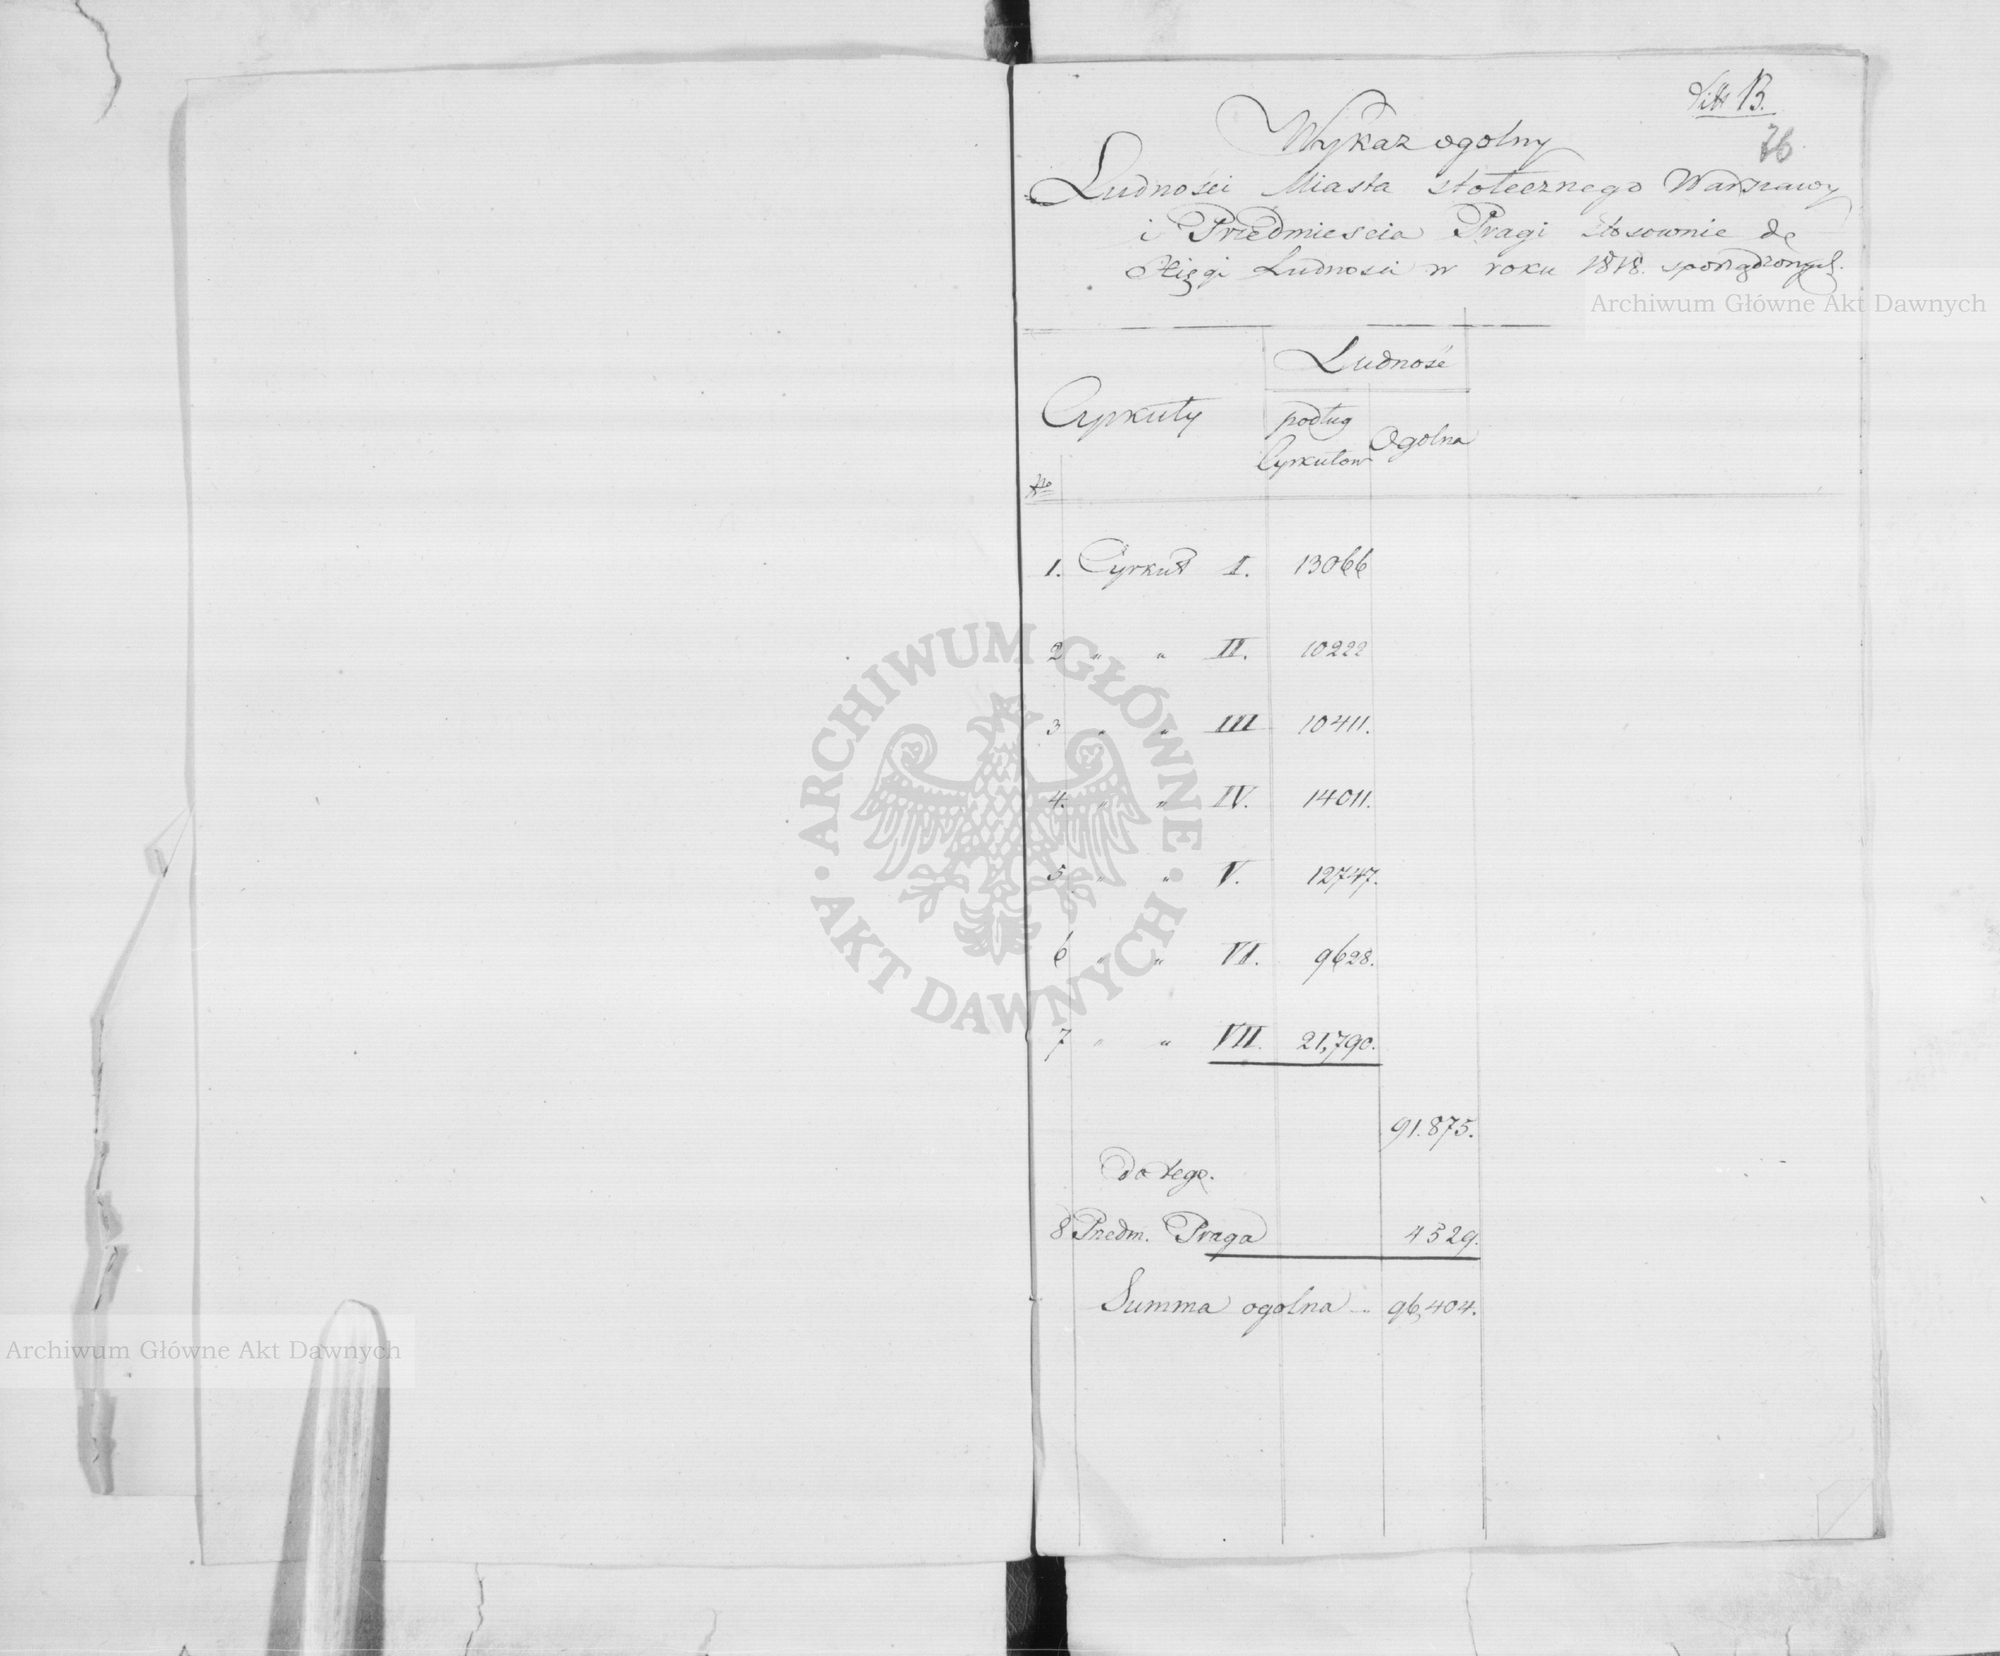 Litt B.
76
Wykaz ogolny
Ludności Miasta stołecznego Warszawy
i Przedmieścia Pragi stosownie do
Xięgi Ludności w roku 1818. sporządzonych.
Archiwum Główne Akt Dawnych
Ludność
Cyrkuły
podług
Cyrkułow
Ogolna
No
1. Cyrkuł I. 13066
2 " " II. 10222
3 " " III 10411.
4. " " IV. 14011.
5 " " V. 12747.
6 " " VI. 9628.
7 " " VII. 21,790.
91.875.
do tego.
8 Przedm. Praga 4529.
Summa ogolna " 96,404.
ARCHIWUM GŁÓWNE
AKT DAWNYCH
Archiwum Główne Akt Dawnych